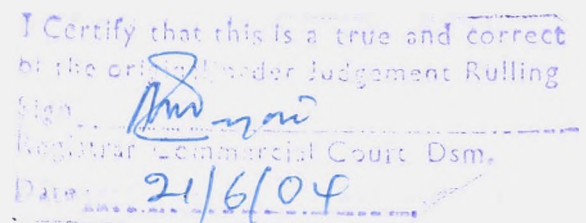 I Certify that this is a true and correct
of the original order Judgement Rulling
Sign
Registrar Commercial Court Dsm.
Date 21/6/04